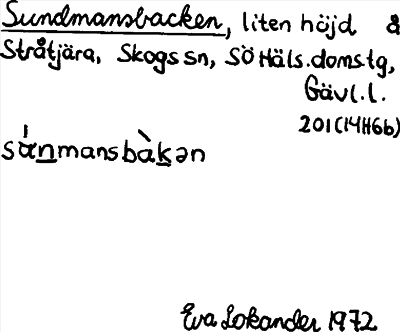 Sundmansbacken, liten höjd å
Stråtjära, Skogs sn, SÖ Häls. doms.tg,
Gävl.l.
201(14H6b)
sánmansbàkən
Eva Lokander 1972